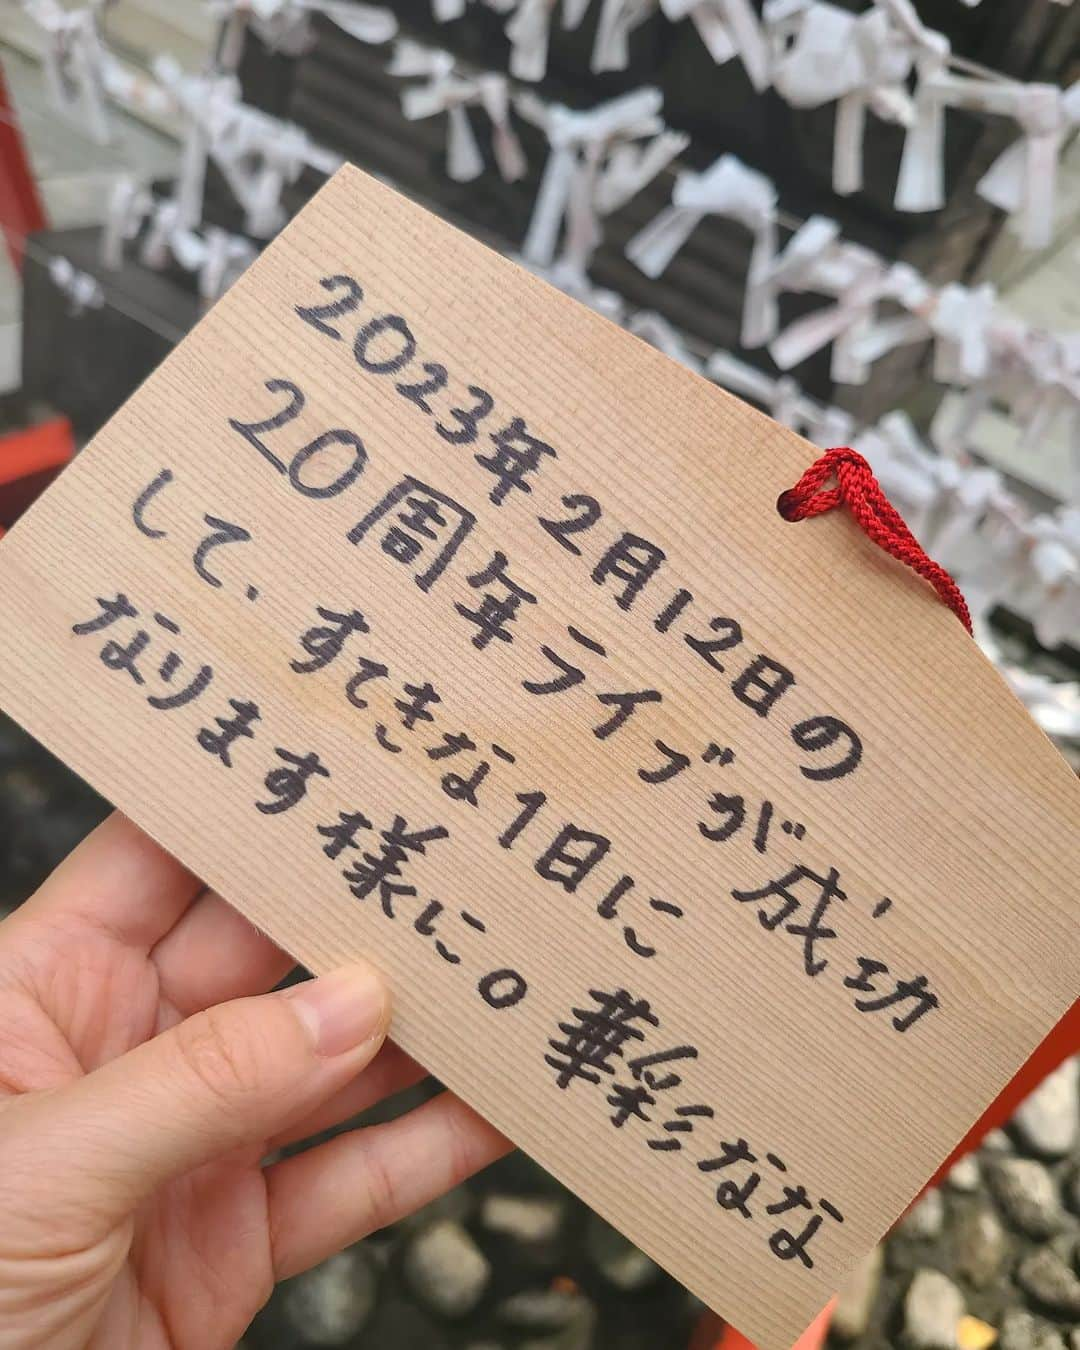 2023年2月12日の
20周年ライブが成功
して、すてきな1日に
なります様に。華彩なな